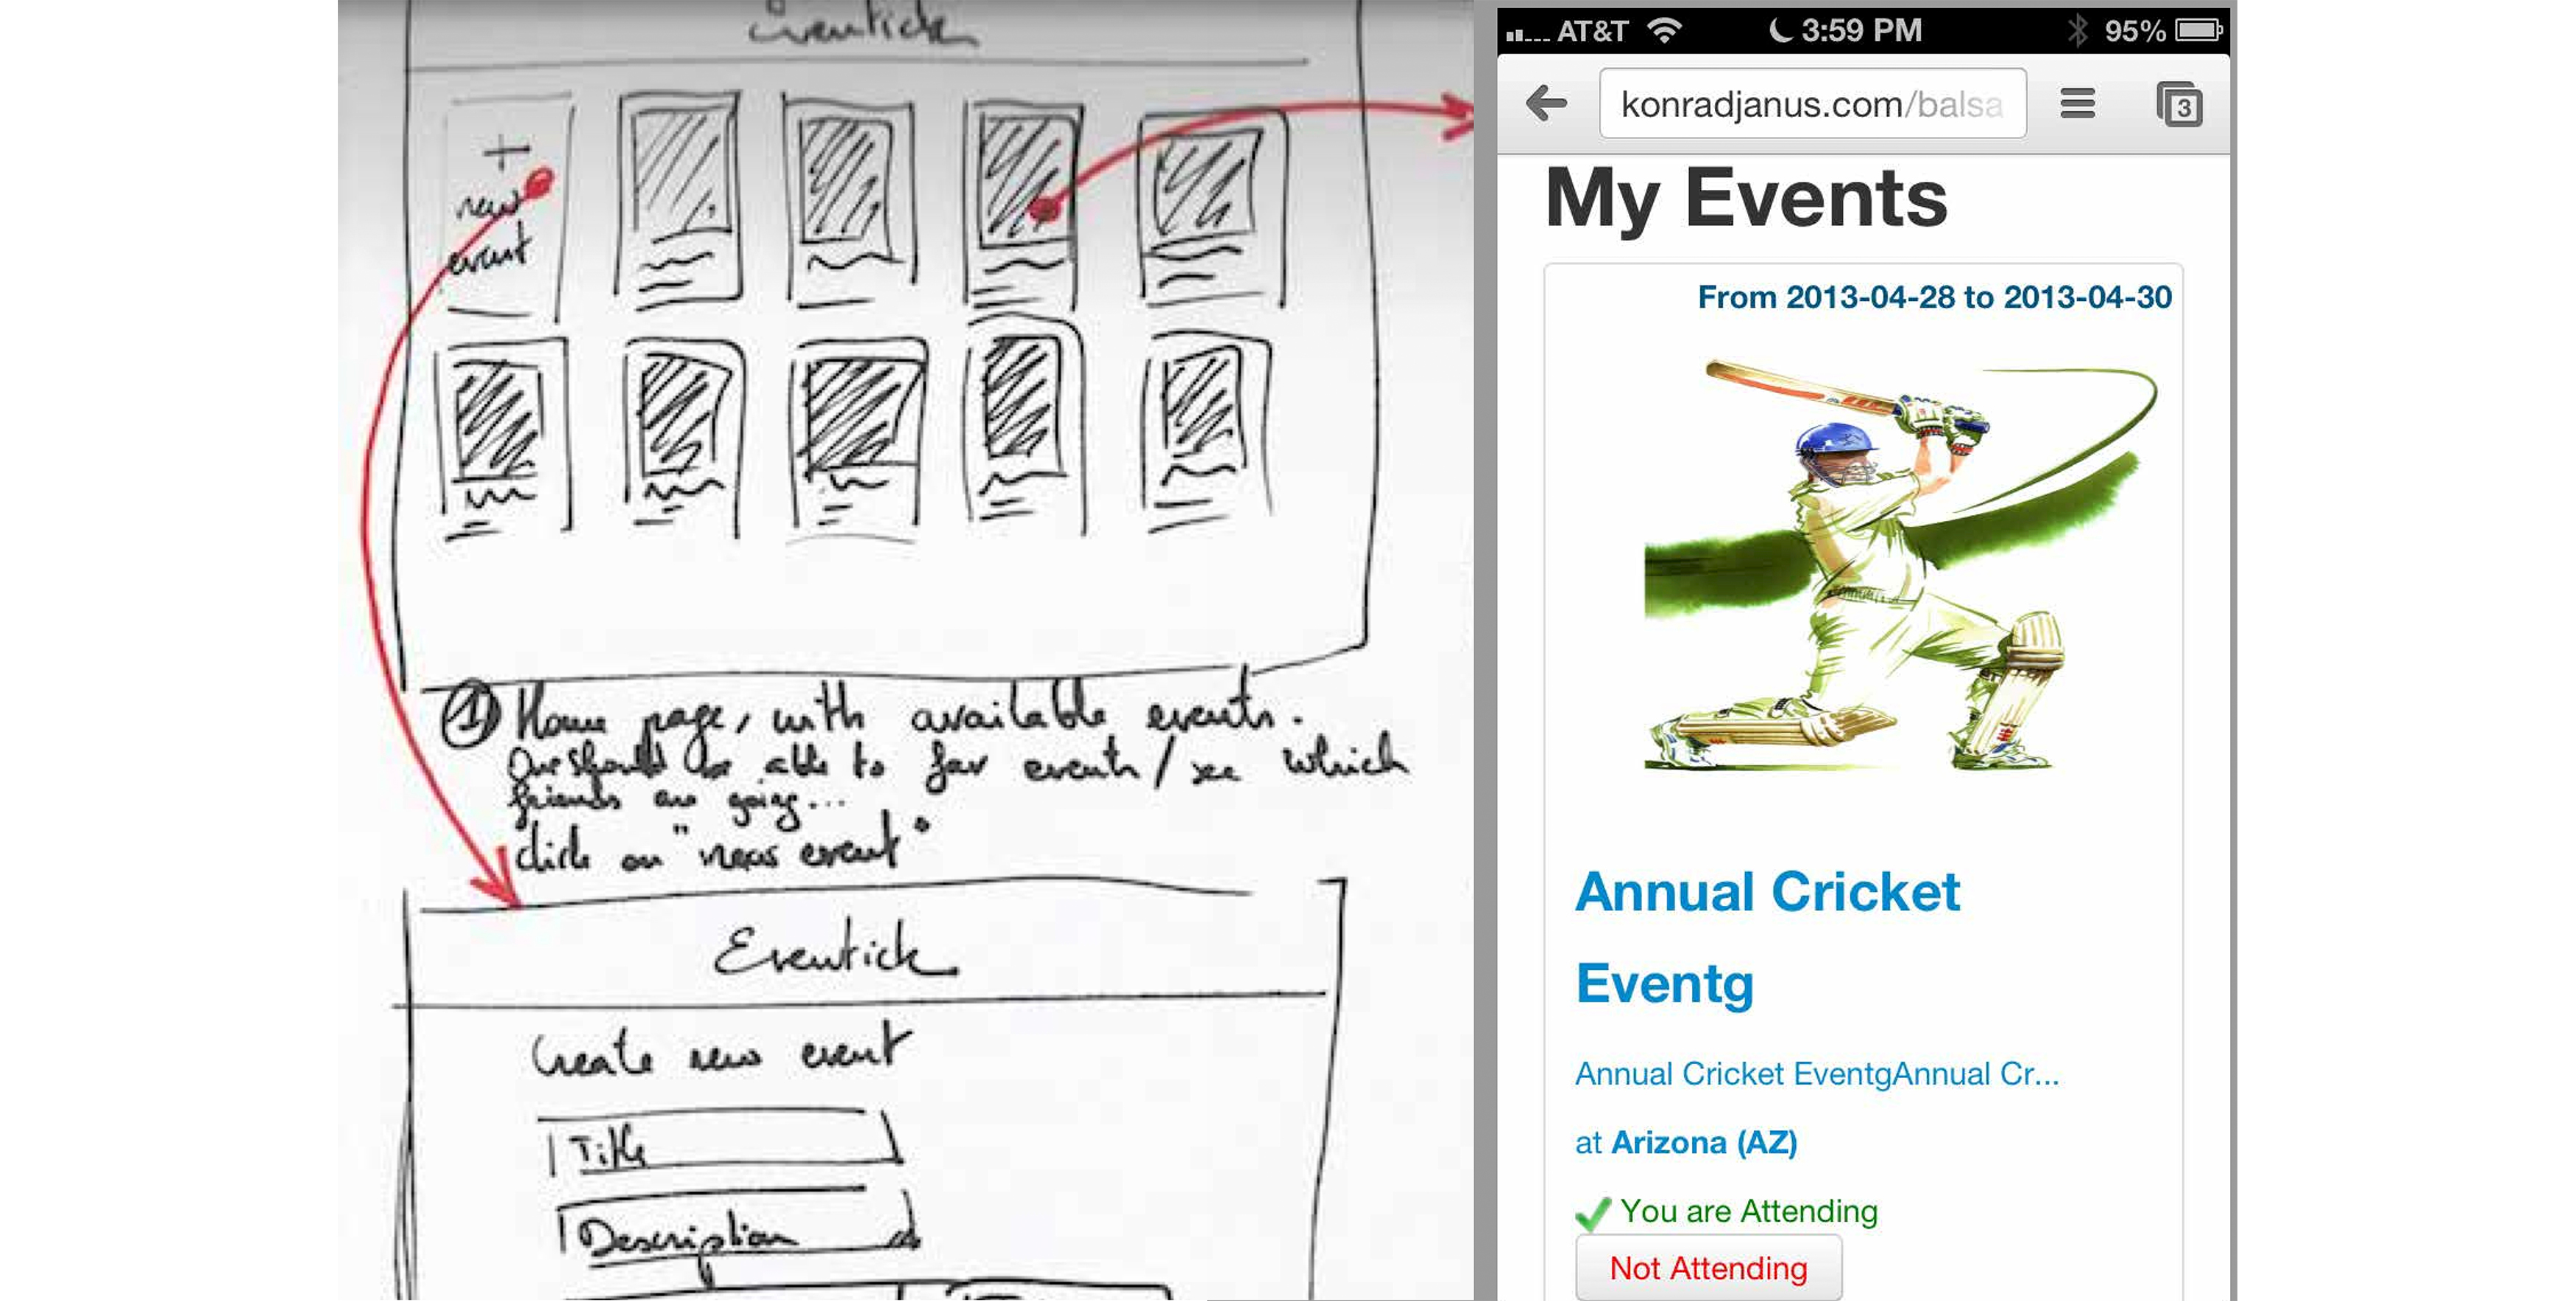 Eventick
+
new
event
① Home page, with available events.
One should be able to fav events / see which
friends are going...
click on "new event"
Eventick
Create new event
Title
Description
AT&T 3:59 PM 95%
konradjanus.com/balsa
3
My Events
From 2013-04-28 to 2013-04-30
Annual Cricket
Eventg
Annual Cricket EventgAnnual Cr...
at Arizona (AZ)
You are Attending
Not Attending